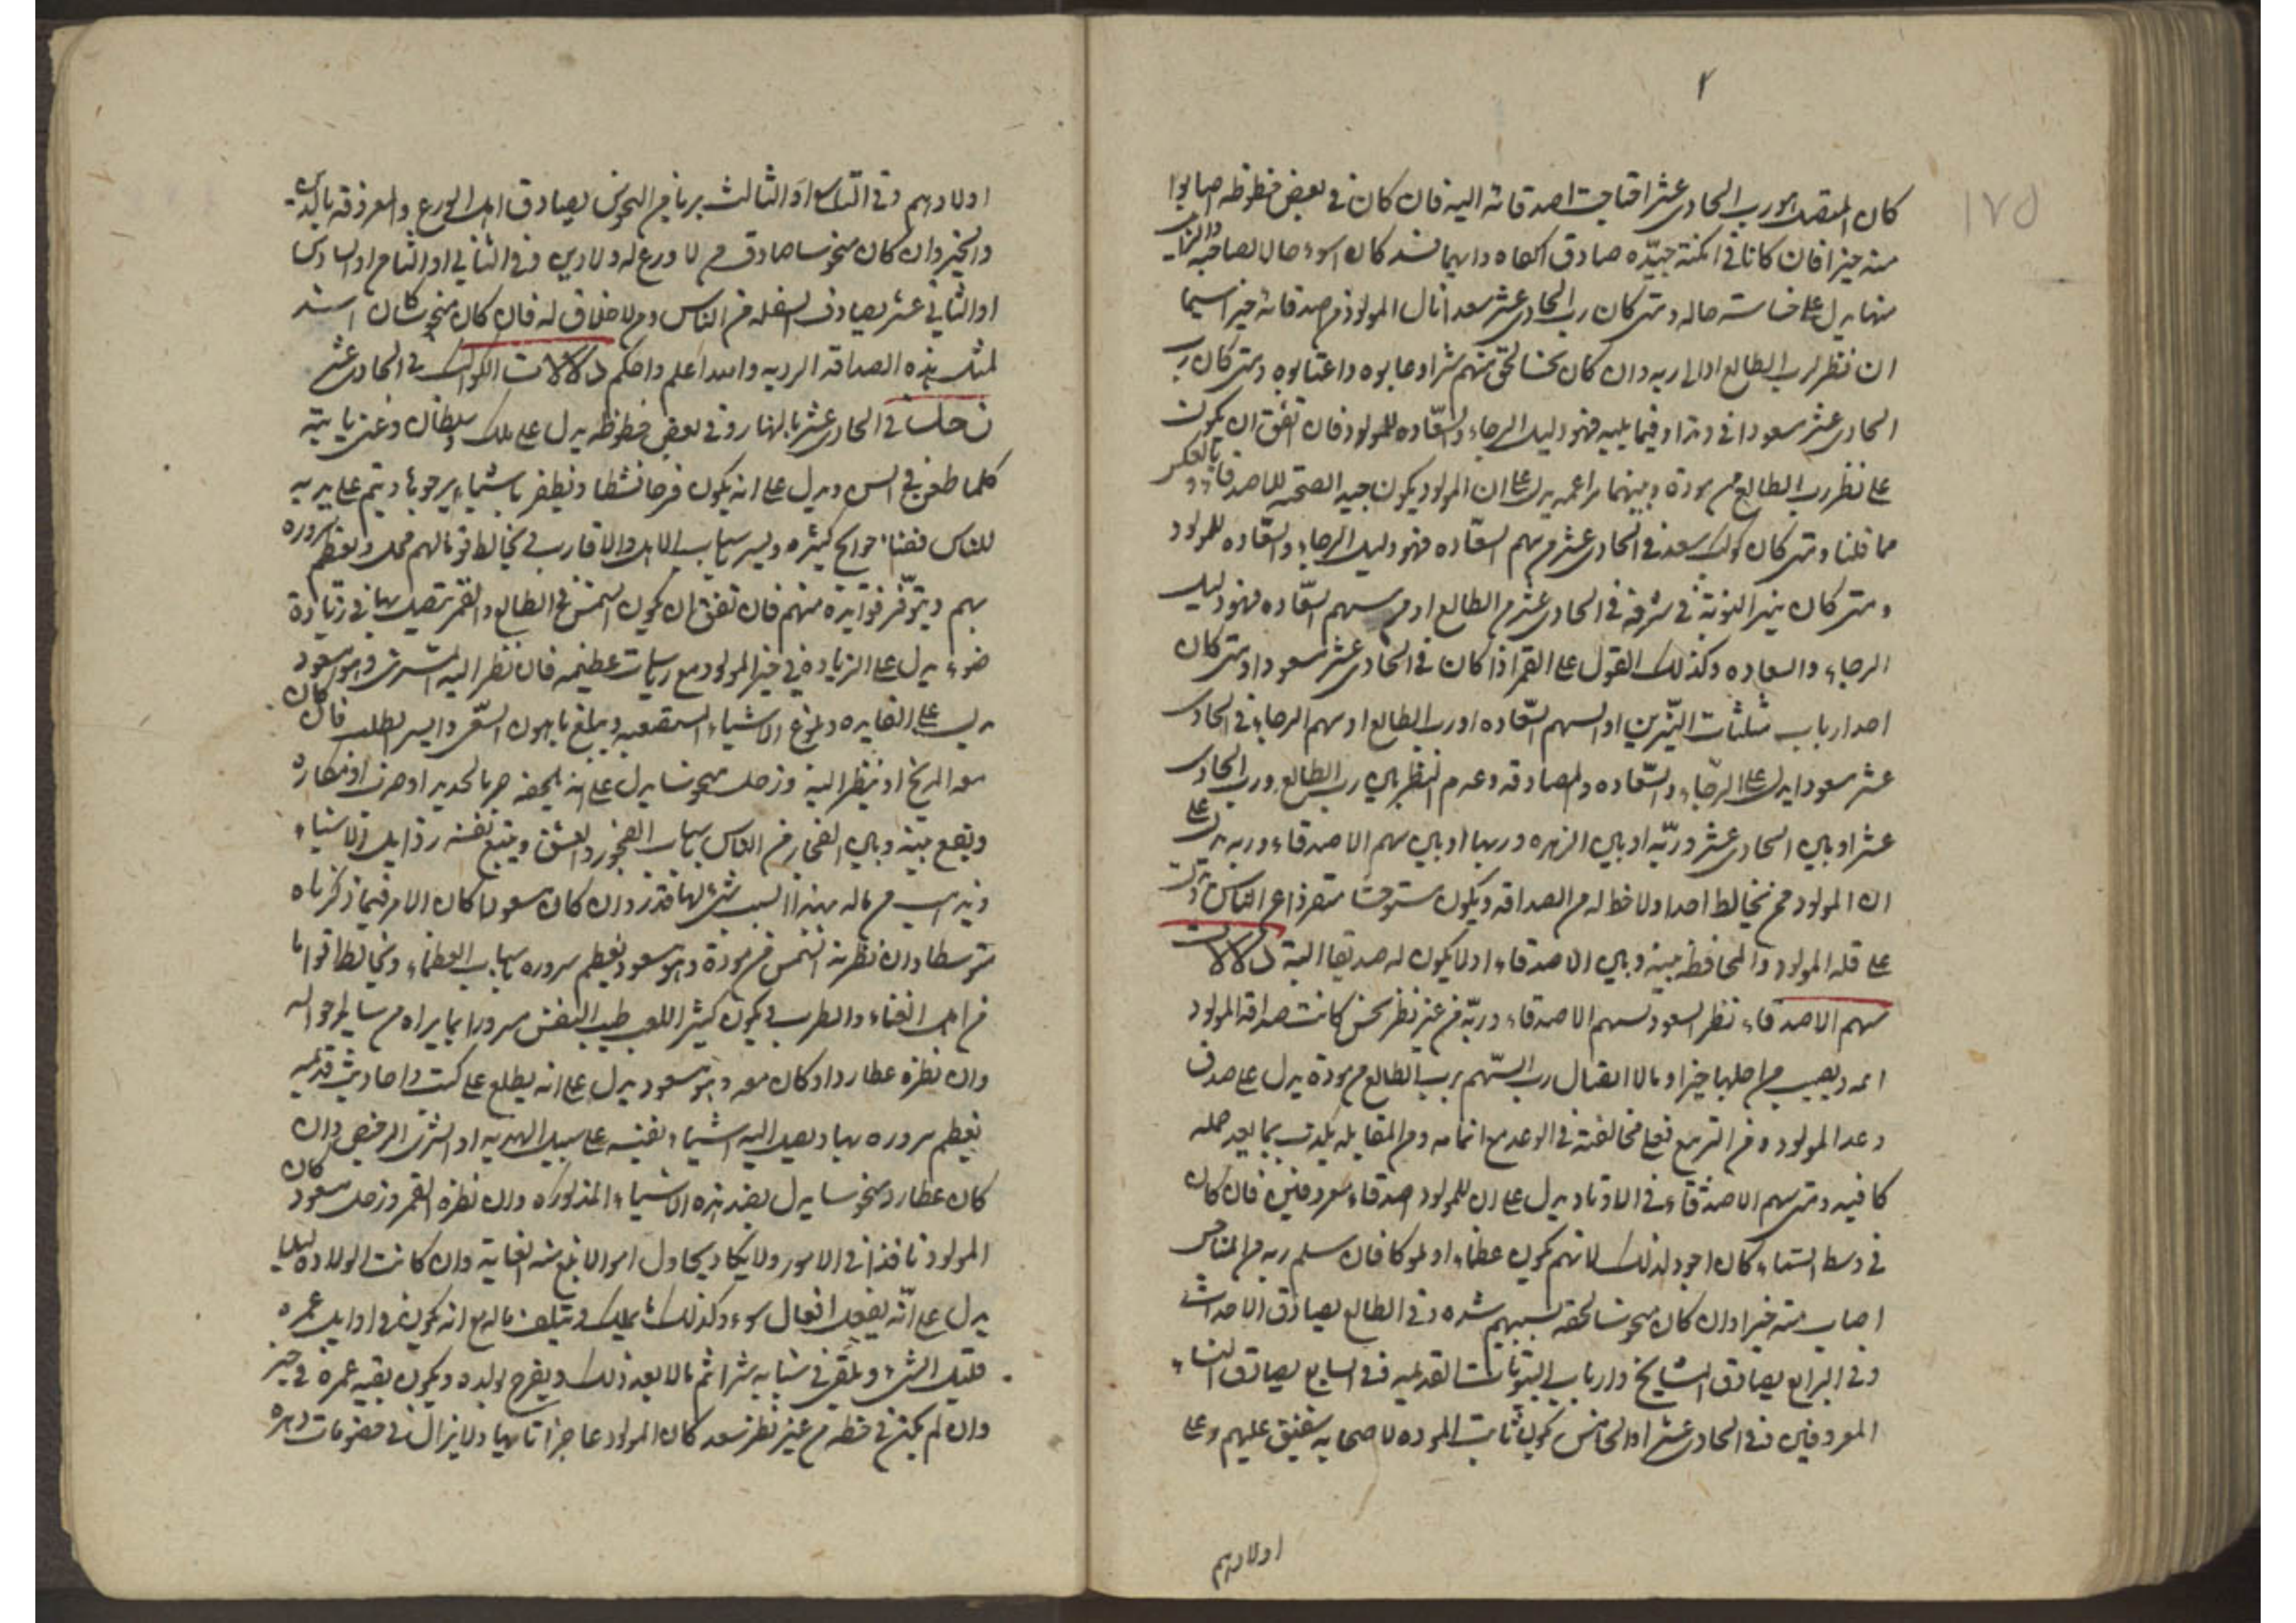 ٢
١٧٥
كان المتصل هو رب الحادى عشر احتاجت اصدقائه اليه فان كان فى بعض حظوظه اصابوا
منه خيرا فان كانا فى امكنة جيّده صادق اكفاه وايهما فسد كان اسوء حالا لصاحبه والذى
منها يدل على خساسته حاله ومتى كان رب الحادى عشر سعدا نال المولود من صدقائه خيرا سيما
ان نظر لرب الطالع او الى ربه وان كان نحسا لحق منهم شرا وعابوه واغتابوه ومتى كان رب
الحادى عشر مسعودا فى وتد او فيما يليه فهو دليل الرجاء والسّعاده للمولود فان اتفق ان يكون
على نظر رب الطالع من مودة وبينهما مزاعمه يدل على ان المولود يكون جيد الصحبة للاصدقاء وبالعكس
مما قلنا ومتى كان كوكب سعد فى الحادى عشر من سهم السعّاده فهو دليل الرجاء والسعّاده للمولود
ومتى كان نير النوبة فى شرفه فى الحادى عشر من الطالع او من سهم السعّاده فهو دليل
الرجاء والسعاده وكذلك القول على القمر اذا كان فى الحادى عشر مسعودا ومتى كان
احد ارباب مثلثات النيّرين او السهم السّعاده او رب الطالع او سهم الرجاء فى الحادى
عشر مسعودا يدل على الرجّاء والسّعاده والمصادقه وعدم النظر بين رب الطالع ورب الحادى
عشر او بين الحادى عشر وربّه او بين الزهره وربها او بين سهم الاصدقاء وربه يدل على
ان المولود ممن يخالط احدا ولا حظ له من الصداقه ويكون مستوحشا متفرذا عن الناس وتدل
على قله المولود والمحافظه بينه وبين الاصدقاء اولا يكون له صديقا البتة دلالات
سهم الاصدقاء نظر السعود لسهم الاصدقاء وربّه من غير نظر نحس كانت صداقه المولود
ويصيب من اجلها خيرا ومالا اتصال رب السّهم برب الطالع من مودة يدل على صدق
وعد المولود ومن التربيع فعلى مخالفة فى الوعد مع اتمامه ومن المقابله يكذب بما يعد جمله
كافيه ومتى سهم الاصدقاء فى الاوتاد يدل على ان للمولود اصدقاء معروفين فان كان
فى وسط السّماء كان اجود لذلك لانهم يكون عظماء او ملوكا فان سلم ربه من المناحس
اصاب منه خيرا وان كان منحوسا لحقه بسببهم شده وفى الطالع يصادق الاحداث
وفى الرابع يصادق المشايخ وارباب البيوتات القديمه وفى السابع يصادق النساء
المعروفين وفى الحادى عشر او الخامس يكون ثابت الموده لاصحابه شفيق عليهم وعلى
اولادهم
اولادهم وفى التاسع او الثالث بريا من النحوس يصادق اهل الورع والمعرفه بالله
والخير وان كان منحوسا صادق من لا ورع له ولا دين وفى الثانى او الثامن او السادس
او الثانى عشر يصادق السفله من الناس ومن لا خلاق له فان كان منحوسا كان اشد
لمثل هذه الصداقه الرديه والله اعلم واحكم دلالات الكواكب فى الحادى عشر
زحل فى الحادى عشر بالنهار وفى بعض حظوظه يدل على ملك وسلطان وغنى ياتيه
كلما طعن فى السن ويدل على انه يكون فرحا نشطا ويظفر باشياء يرجوها ويتم على يديه
للناس قضاء حوايج كثيره ويسر باسباب الاهل والاقارب فى يخالط قوما لهم محل ويعظم سروره
بهم ويتوّفر فوايده منهم فان تفق ان يكون الشمس فى الطالع والقمر متصل بها فى زيادة
ضوء يدل على الزياده فى خير المولود مع رياسات عظيمه فان نظر اليه المشترى وهو مسعود
يدل على الفايده وبلوغ الاشياء المستصعبه ويبلغ باهون السّعى وايسر الطلب فان كان
معه المريخ او ينظر اليه وزحل منحوسا يدل على انه يلحقه جرح بالحديد او حرق او مكاره
ويقع بينه وبين الفجار من الناس باسباب الفجور والعشق ويتبع نفسه رذايل الاشياء
ويذهب من ماله بهذا السبب شئ لها قدر وان كان مسعودا كان الامر فيما ذكرناه
متوسطا وان نظرته الشمس من مودة وهو مسعود يعظم سروره باسباب العظماء ويخالط اقواما
من اهل الغناء والطرب فى يكون كثير اللعب طيب النفس مسرورا بما يراه من ساير احواله
وان نظره عطارد او كان معه وهو مسعود يدل على انه يطلع على كتب واحاديث قديمه
يعظم سروره بها ويصل اليه اشياء نفيسه على سبيل الهديه او الشرى الرخيص وان
كان عطارد منحوسا يدل بضد هذه الاشياء المذكوره وان نظره القمر وزحل مسعود كان
المولود نافذا فى الامور ولا يكاد يحاول امرا الا بلغ منه الغاية وان كانت الولاده ليلا
يدل على انّه يفعل افعال سوء وكذلك ما يملك ويتلف ماله مع انه يكون فى اوايل عمره
قليل الشئ ويلقى فى شبابه شرا ثم مالا بعد ذلك ويفرح لولده ويكون بقيه عمره فى خير
وان لم يكن فى حظه من غير نظر سعد كان المولود عاجزا تائها ولا يزال فى خصومات دهره